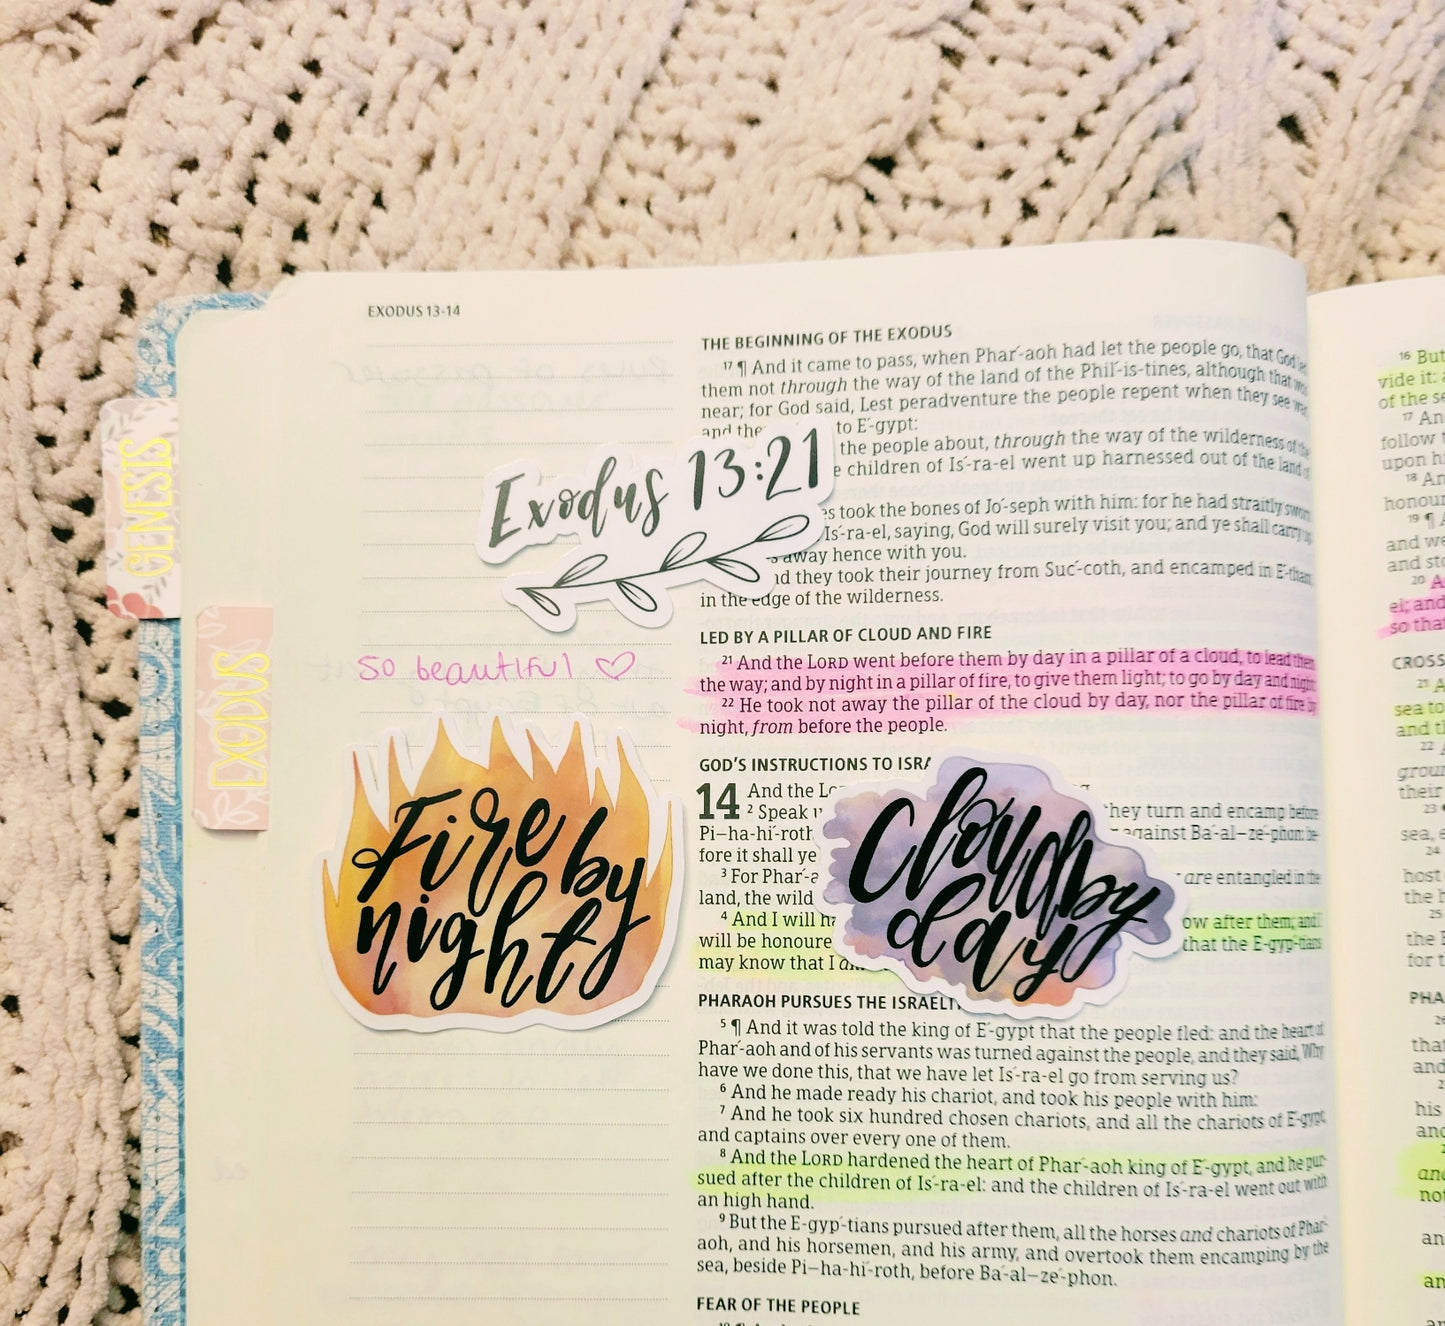 EXODUS 13-14
GENESIS
EXODUS
Exodus 13:21
so beautiful ♡
Fire by
night
Cloud by
day
THE BEGINNING OF THE EXODUS
17 ¶ And it came to pass, when Phar´-aoh had let the people go, that God led
them not through the way of the land of the Phil´-is-tines, although that was
near; for God said, Lest peradventure the people repent when they see war
and they to E´-gypt:
the people about, through the way of the wilderness of the
children of Is´-ra-el went up harnessed out of the land
took the bones of Jo´-seph with him: for he had straitly sworn
Is´-ra-el, saying, God will surely visit you; and ye shall carry up
away hence with you.
they took their journey from Suc´-coth, and encamped in E´-tham
in the edge of the wilderness.
LED BY A PILLAR OF CLOUD AND FIRE
21 And the LORD went before them by day in a pillar of a cloud, to lead them
the way; and by night in a pillar of fire, to give them light; to go by day and night:
22 He took not away the pillar of the cloud by day, nor the pillar of fire by
night, from before the people.
GOD'S INSTRUCTIONS TO
14 And the
2 Speak they turn and encamp before
Pi–ha-hi´-roth against Ba´-al–ze´-phon: be-
fore it shall ye
3 For are entangled in the
land, the wild
4 And I will after them; and I
will be honoure that the E-gyp-tians
may know that I
PHARAOH PURSUES THE
5 ¶ And it was told the king of E´-gypt that the people fled: and the heart of
Phar´-aoh and of his servants was turned against the people, and they said, Why
have we done this, that we have let Is´-ra-el go from serving us?
6 And he made ready his chariot, and took his people with him:
7 And he took six hundred chosen chariots, and all the chariots of E´-gypt,
and captains over every one of them.
8 And the LORD hardened the heart of Phar´-aoh king of E´-gypt, and he pur-
sued after the children of Is´-ra-el: and the children of Is´-ra-el went out with
an high hand.
9 But the E-gyp´-tians pursued after them, all the horses and chariots of Phar´-
aoh, and his horsemen, and his army, and overtook them encamping by the
sea, beside Pi–ha-hi´-roth, before Ba´-al–ze´-phon.
FEAR OF THE PEOPLE
16 But
vide it:
of the
17
follow
upon
18
honour
19 ¶
and we
and
20
el; and
so that
CROSS
21
sea to
and
22
their
23
sea,
24
host
the
25
the
for
26
that
and
his
and